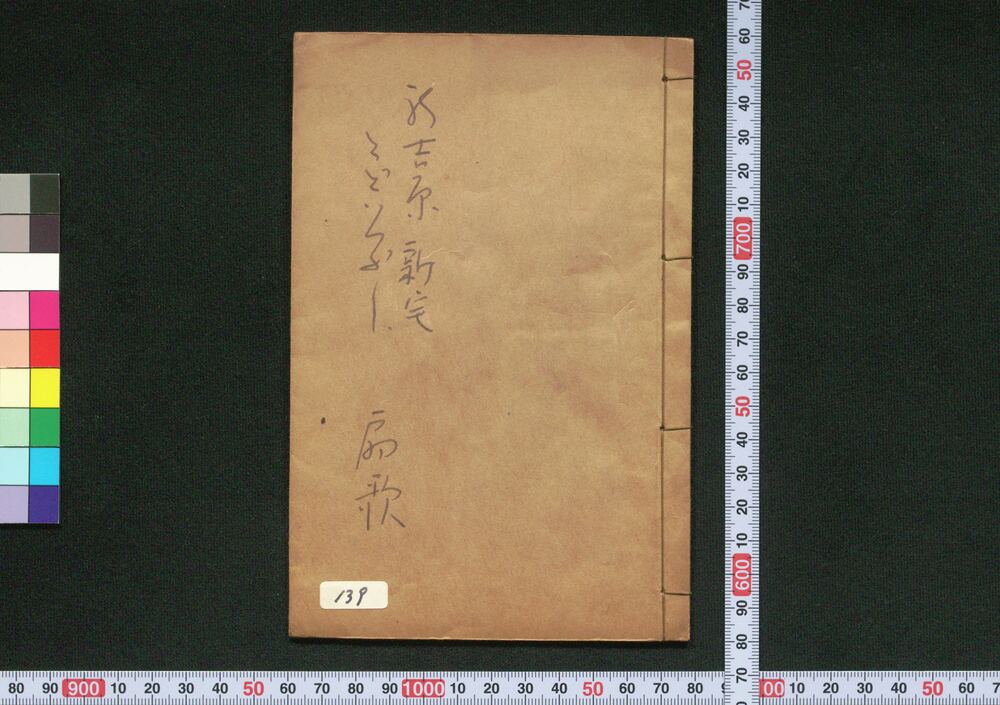 新吉原 新宅
とどいつぶし
扇歌
139
80 90 900 10 20 30 40 50 60 70 80 90 1000 10 20 30 40 50 60 70 80 9 00 10 20 30 40 50 60 7
70 60 50 40 30 20 10 700 90 80 70 60 50 40 30 20 10 600 90 80 70